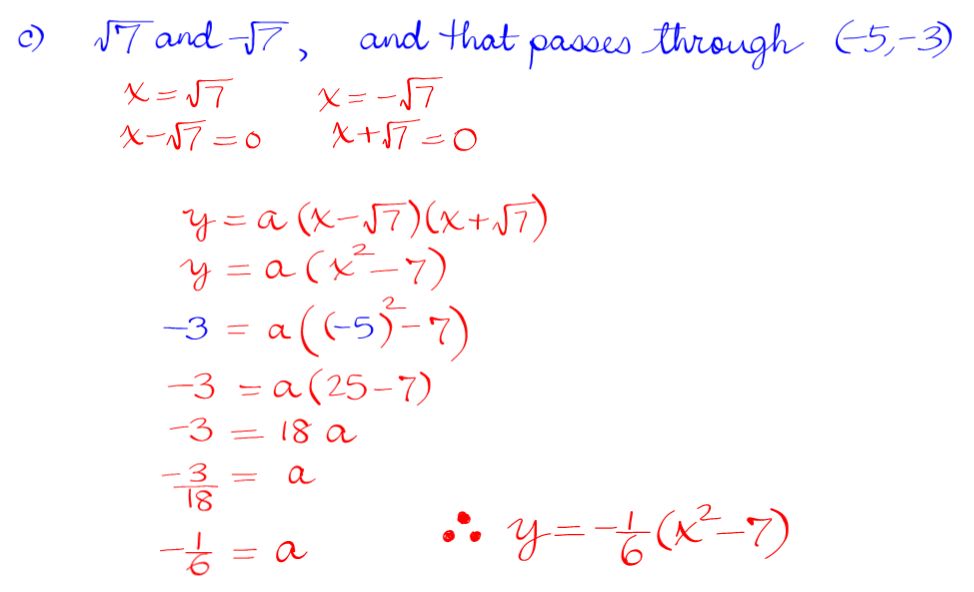 c) √7 and -√7, and that passes through (-5,-3)
x=√7 x=-√7
x-√7=0 x+√7=0
y=a(x-√7)(x+√7)
y=a(x²-7)
-3=a((-5)²-7)
-3=a(25-7)
-3=18a
-3/18=a
-1/6=a ∴ y=-1/6(x²-7)